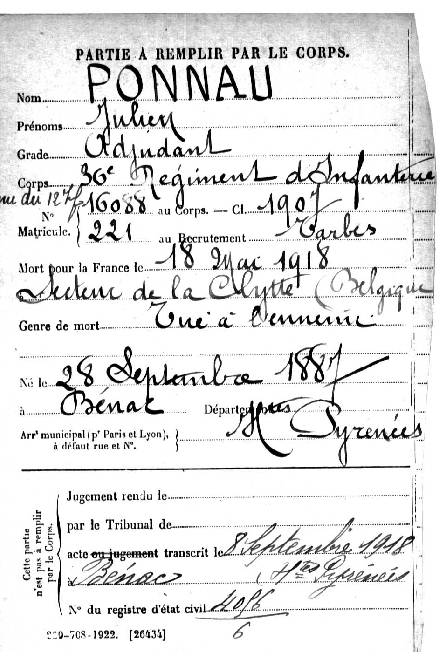 PARTIE À REMPLIR PAR LE CORPS.
Nom PONNAU
Prénoms Julien
Grade Adjudant
Corps 36e Régiment d'Infanterie
venu du 127e
N° Matricule. { 16088 au Corps. — Cl. 1907
221 au Recrutement Tarbes
Mort pour la France le 18 Mai 1918
Secteur de la Clytte (Belgique
Genre de mort Tué à l'ennemi
Né le 28 Septembre 1887
à Bénac Département Htes Pyrénées
Arrt municipal (pr Paris et Lyon),
à défaut rue et N°. }
Cette partie
n'est pas à remplir
par le Corps.
Jugement rendu le
par le Tribunal de
acte ou jugement transcrit le 8 Septembre 1918
Bénac Htes Pyrénées
N° du registre d'état civil 4096
6
-708-1922. [26434]